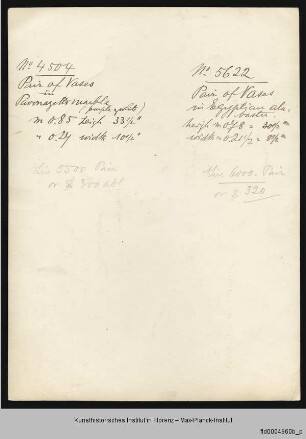 No 4504
Pair of Vases
in
Pavonazetto marble
(purple & white)
m 0.85 heigh 33½"
" 0.27 width 10½"
Lire 5500 Pair
or £ 300
No 5622
Pair of Vases
in Egyptian ala-
baster.
heigh m 0.78 = 30½"
width = 0.21½ = 8½"
Lire 6000. Pair
or £ 320
Kunsthistorisches Institut in Florenz – Max-Planck-Institut
fld0004960b_p